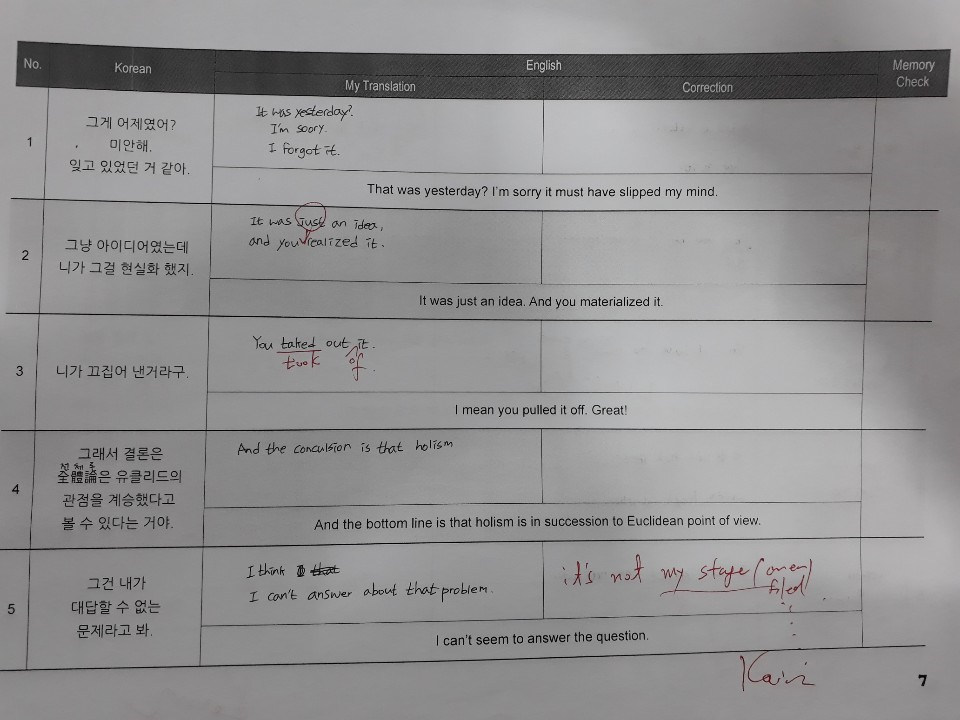 No.
Korean
English
My Translation
Correction
Memory
Check
1
그게 어제였어?
미안해.
잊고 있었던 거 같아.
It was yesterday?
I'm soory.
I forgot it.
That was yesterday? I'm sorry it must have slipped my mind.
2
그냥 아이디어였는데
니가 그걸 현실화 했지.
It was just an idea,
and you realized it.
It was just an idea. And you materialized it.
3
니가 끄집어 낸거라구.
You taked out it.
took of
I mean you pulled it off. Great!
4
그래서 결론은
전체론
全體論은 유클리드의
관점을 계승했다고
볼 수 있다는 거야.
And the conculsion is that holism
And the bottom line is that holism is in succession to Euclidean point of view.
5
그건 내가
대답할 수 없는
문제라고 봐.
I think I that
I can't answer about that problem.
it's not my stage (
I can't seem to answer the question.
7